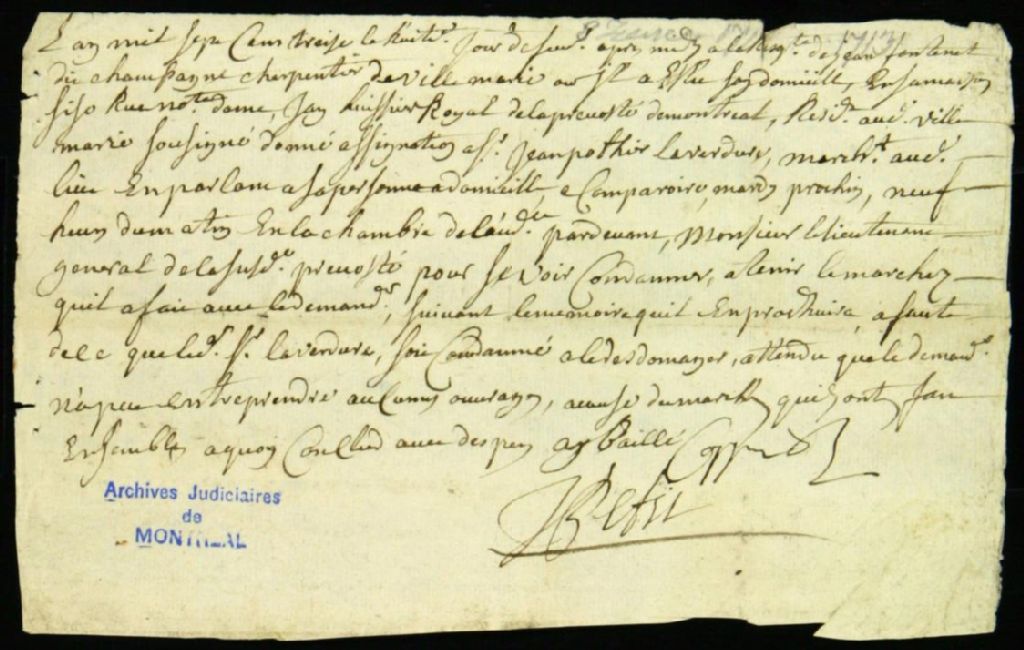 L an mil sept Cens treise le huite.e Jour de feuv.r apres midy a la Req.te de jean fontenet
dit champagne charpentier de ville marie ou Jl a Eslu son domicille, En sa maison
sise Rue not.e dame, Jay huissier Royal de la prevosté de montreal, Resid.t aud. ville
marie sousigné donné assignation a s.r Jean pothier laverdure, march.t aud.
lieu En parlant a sa personne a domicille a Comparoire, mardy prochin, neuf
heures du matin En la chambre de l'aud.ce pardevant, Monsieur le lieutenant
general de la susd.te prevosté pour se voir Condamner, a tenir le marchez
quil a fait avec le demand.r, suivant le memoire quil En produira, a faute
de ce que led. s.r laverdure, soit Condamné a le desdomager, attendu que le demand.r
n'a peu Entreprendre auCunes ouvrages, a cause du marché quils ont fait
Ensemble, a quoy Conclud avec despens ay baillé Coppie
JPetit
Archives Judiciaires
de
MONTREAL